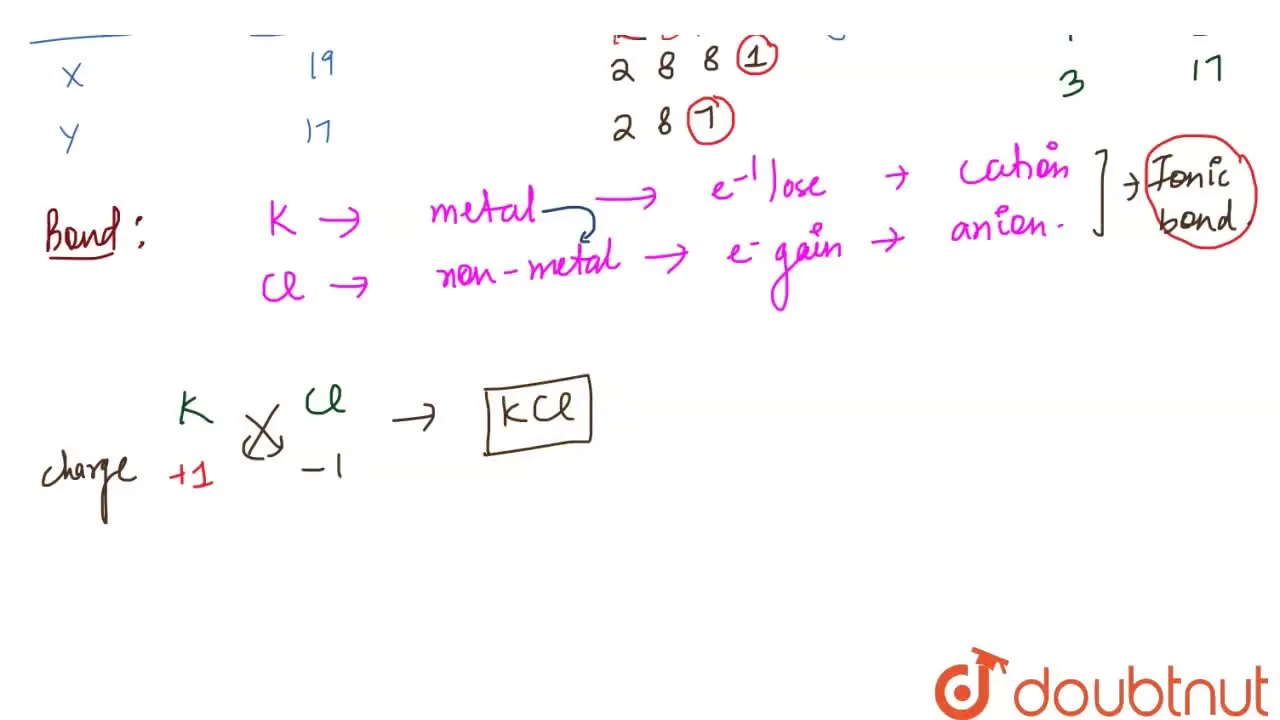 X 19 2 8 8 1
3 17
Y 17 2 8 7
Bond: K → metal → e⁻¹ lose → cation ] → Ionic bond.
Cl → non-metal → e⁻ gain → anion.
K Cl → KCl
charge +1 -1
doubtnut